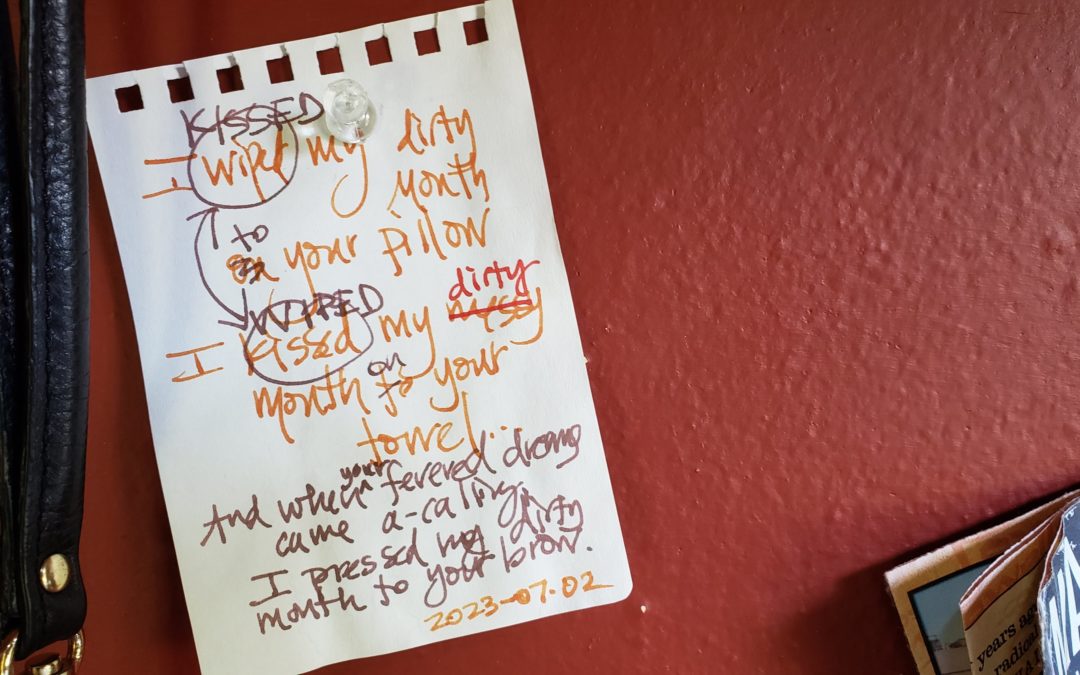 KISSED
I wiped my dirty
mouth
to
on your pillow
dirty
WIPED
I kissed my messy
on
mouth to your
towel.
your
And when fevered dreams
came a-calling,
I pressed my dirty
mouth to your brow.
2023-07.02
years ago
radical